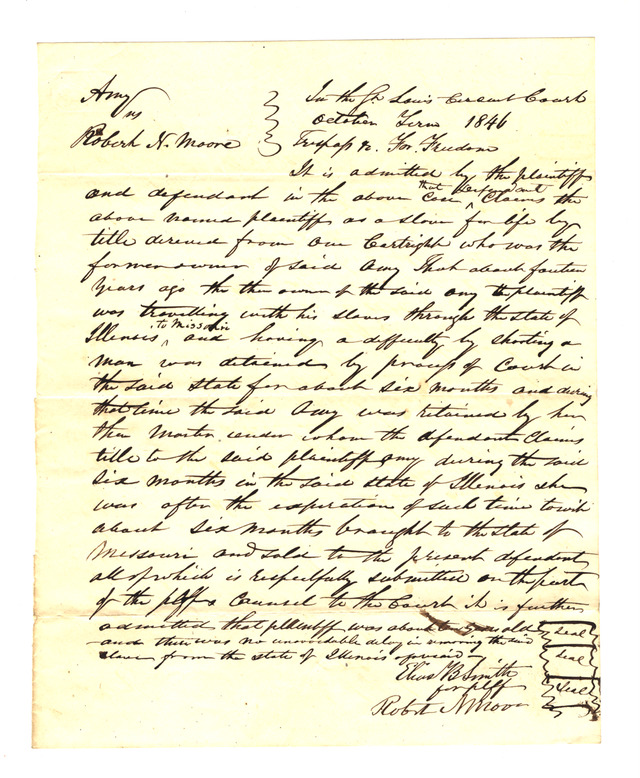 Amy
vs
Robert N. Moore
In the St Louis Circuit Court
October Term 1846
Trespass &c. For Freedom
It is admitted by the plaintiff
and defendant in the above case that defendant claims the
above named plaintiff as a slave for life by
title derived from one Cartright who was the
former owner of said Amy That about fourteen
years ago the then owner of the said Amy the plaintiff
was travelling with his slaves through the state of
Illinois to Missouri and having a difficulty by shooting a
man was detained by process of Court in
the said state for about six months and during
that time the said Amy was retained by her
then Master under whom the defendant claims
title to the said plaintiff Amy during the said
six months in the said state of Illinois she
was after the expiration of such time towit
about six months brought to the state of
Missouri and sold to the present defendant,
all of which is respectfully submitted on the part
of the plffs Counsel to the Court it is further
admitted that plaintiff was about years old
and there was no unavoidable delay in removing the said
slaves from the state of Illinois aforesaid
Elias B Smith
for plff
Robert N Moore
seal
seal
seal